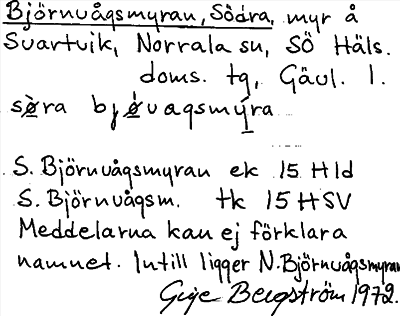 Björnvågsmyran, Södra, myr å
Svartvik, Norrala sn, SÖ Häls.
doms. tg, Gävl. l.
sø̀ra bjǿvagsmýra
S. Björnvågsmyran ek 15 H1d
S. Björnvågsm. tk 15 HSV
Meddelarna kan ej förklara
namnet. Intill ligger N. Björnvågsmyran
Bergström 1972.